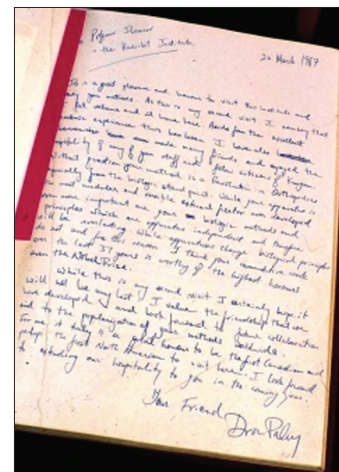 To Professor Ilizarov
- the Kurgan Institute
20 March 1987
It is a great pleasure and honour to visit this institute and
study your methods. As this is my second visit I can say that
I feel at home and at home here. Aside for the excellent
academic experience this has been I have also
made many friends and enjoyed the
hospitality of many of your staff and fellow citizens of Kurgan.
Without question your method is a Revolution in Orthopedics
especially from the biologic stand point. While your apparatus is
the most modular and versatile external fixator ever developed
even more important are your biologic methods and
principles which are apparatus independent and therefore
will be everlasting while apparatuses change biological principles
do not and for this reason I think your remarkable work
over the last 37 years is worthy of the highest honours
even the Nobel Prize.
While this is my second visit I certainly hope it
will not be my last. I value the friendship that we
have developed and look forward to future collaboration
and to the popularization of your methods worldwide.
For me it truly is a great honour to be the first Canadian and
perhaps the first North American to visit here. I look forward
to extending our hospitality to you in the coming years.
Your Friend
Dror Paley